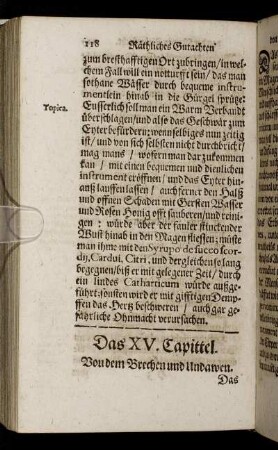 118 Räthliches Gutachten
zum bresthafftigen Ort zubringen / in wel-
chem Fall will ein notturfft sein / das man
sothane Wässer durch bequeme instru-
mentlein hinab in die Gürgel sprütze:
Topica.
Eusserlich soll man ein Warm Verbandt
überschlagen / und also das Geschwär zum
Eyter befürdern; wenn selbiges nun zeitig
ist / und von sich selbsten nicht durchbricht /
mag mans / wofern man dar zukommen
kan / mit einen bequemen und dienlichen
instrument eröffnen / und das Eyter hin-
auß lauffen lassen / auch ferner den Halß
und offnen Schaden mit Gersten Wasser
und Rosen Honig offt säuberen / und reini-
gen : würde aber der fauler stinckender
Wust hinab in den Magen fliessen; müste
man ihme mit den Syrupo de succo scor-
dij, Cardui, Citri, und dergleichen so lang
begegnen / biß er mit gelegener Zeit / durch
ein lindes Catharticum würde außge-
führt: sonsten wird er mit gifftigen Dempf-
fen das Hertz beschweren / auch gar ge-
fährliche Ohnmacht verursachen.
Das XV. Capittel.
Von dem Brechen und Undawen.
Das